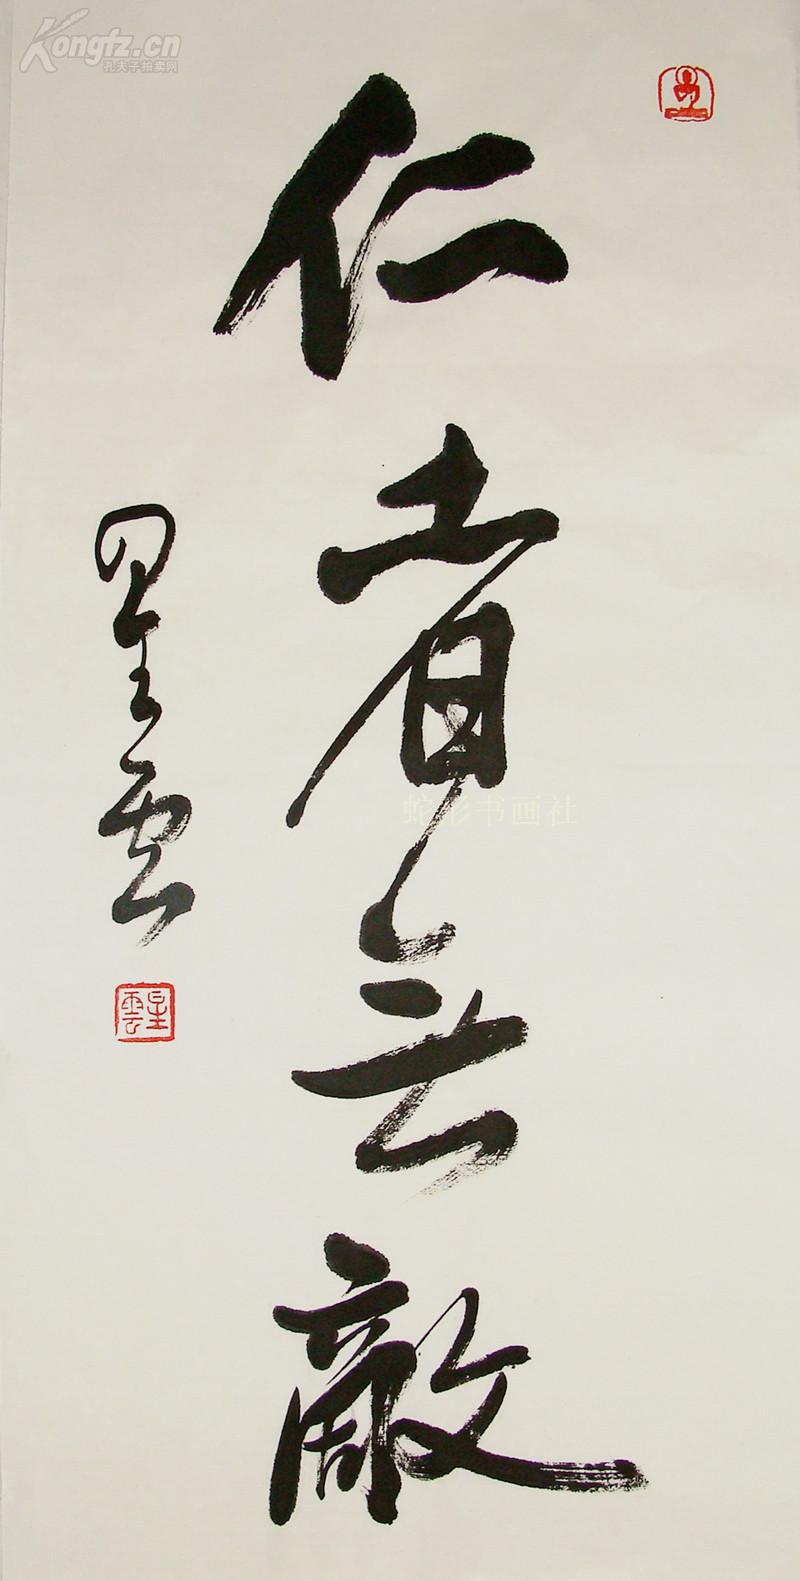 仁者无敌
星云
星雲
Kongfz.cn
孔夫子拍卖网
蛇形书画社